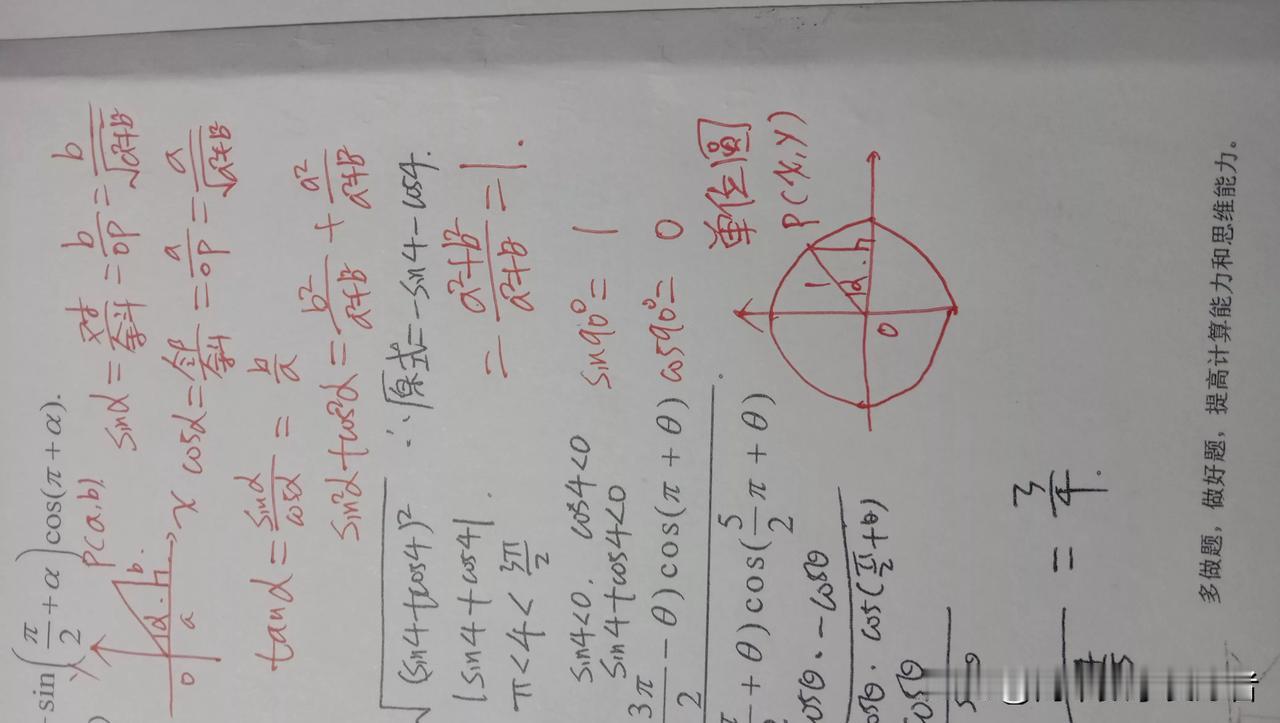 -sin(π/2+α)cos(π+α).
y
P(a,b)
b
α
0
a
x
sinα=对/斜=b/OP=b/√(a²+b²)
cosα=邻/斜=a/OP=a/√(a²+b²)
tanα=sinα/cosα=b/a
sin²α+cos²α=b²/(a²+b²)+a²/(a²+b²)
=(a²+b²)/(a²+b²)=1.
√(sin4+cos4)²
∴原式=-sin4-cos4.
|sin4+cos4|
π<4<3π/2
sin4<0.cos4<0
sin4+cos4<0
sin90°=1
cos90°=0
3π/2-θ)cos(π+θ)
+θ)cos(5/2π+θ)
单位圆
P(x,y)
1
α
0
cosθ.-cosθ
cosθ.cos(π/2+θ)
cosθ
=3/4.
多做题，做好题，提高计算能力和思维能力。